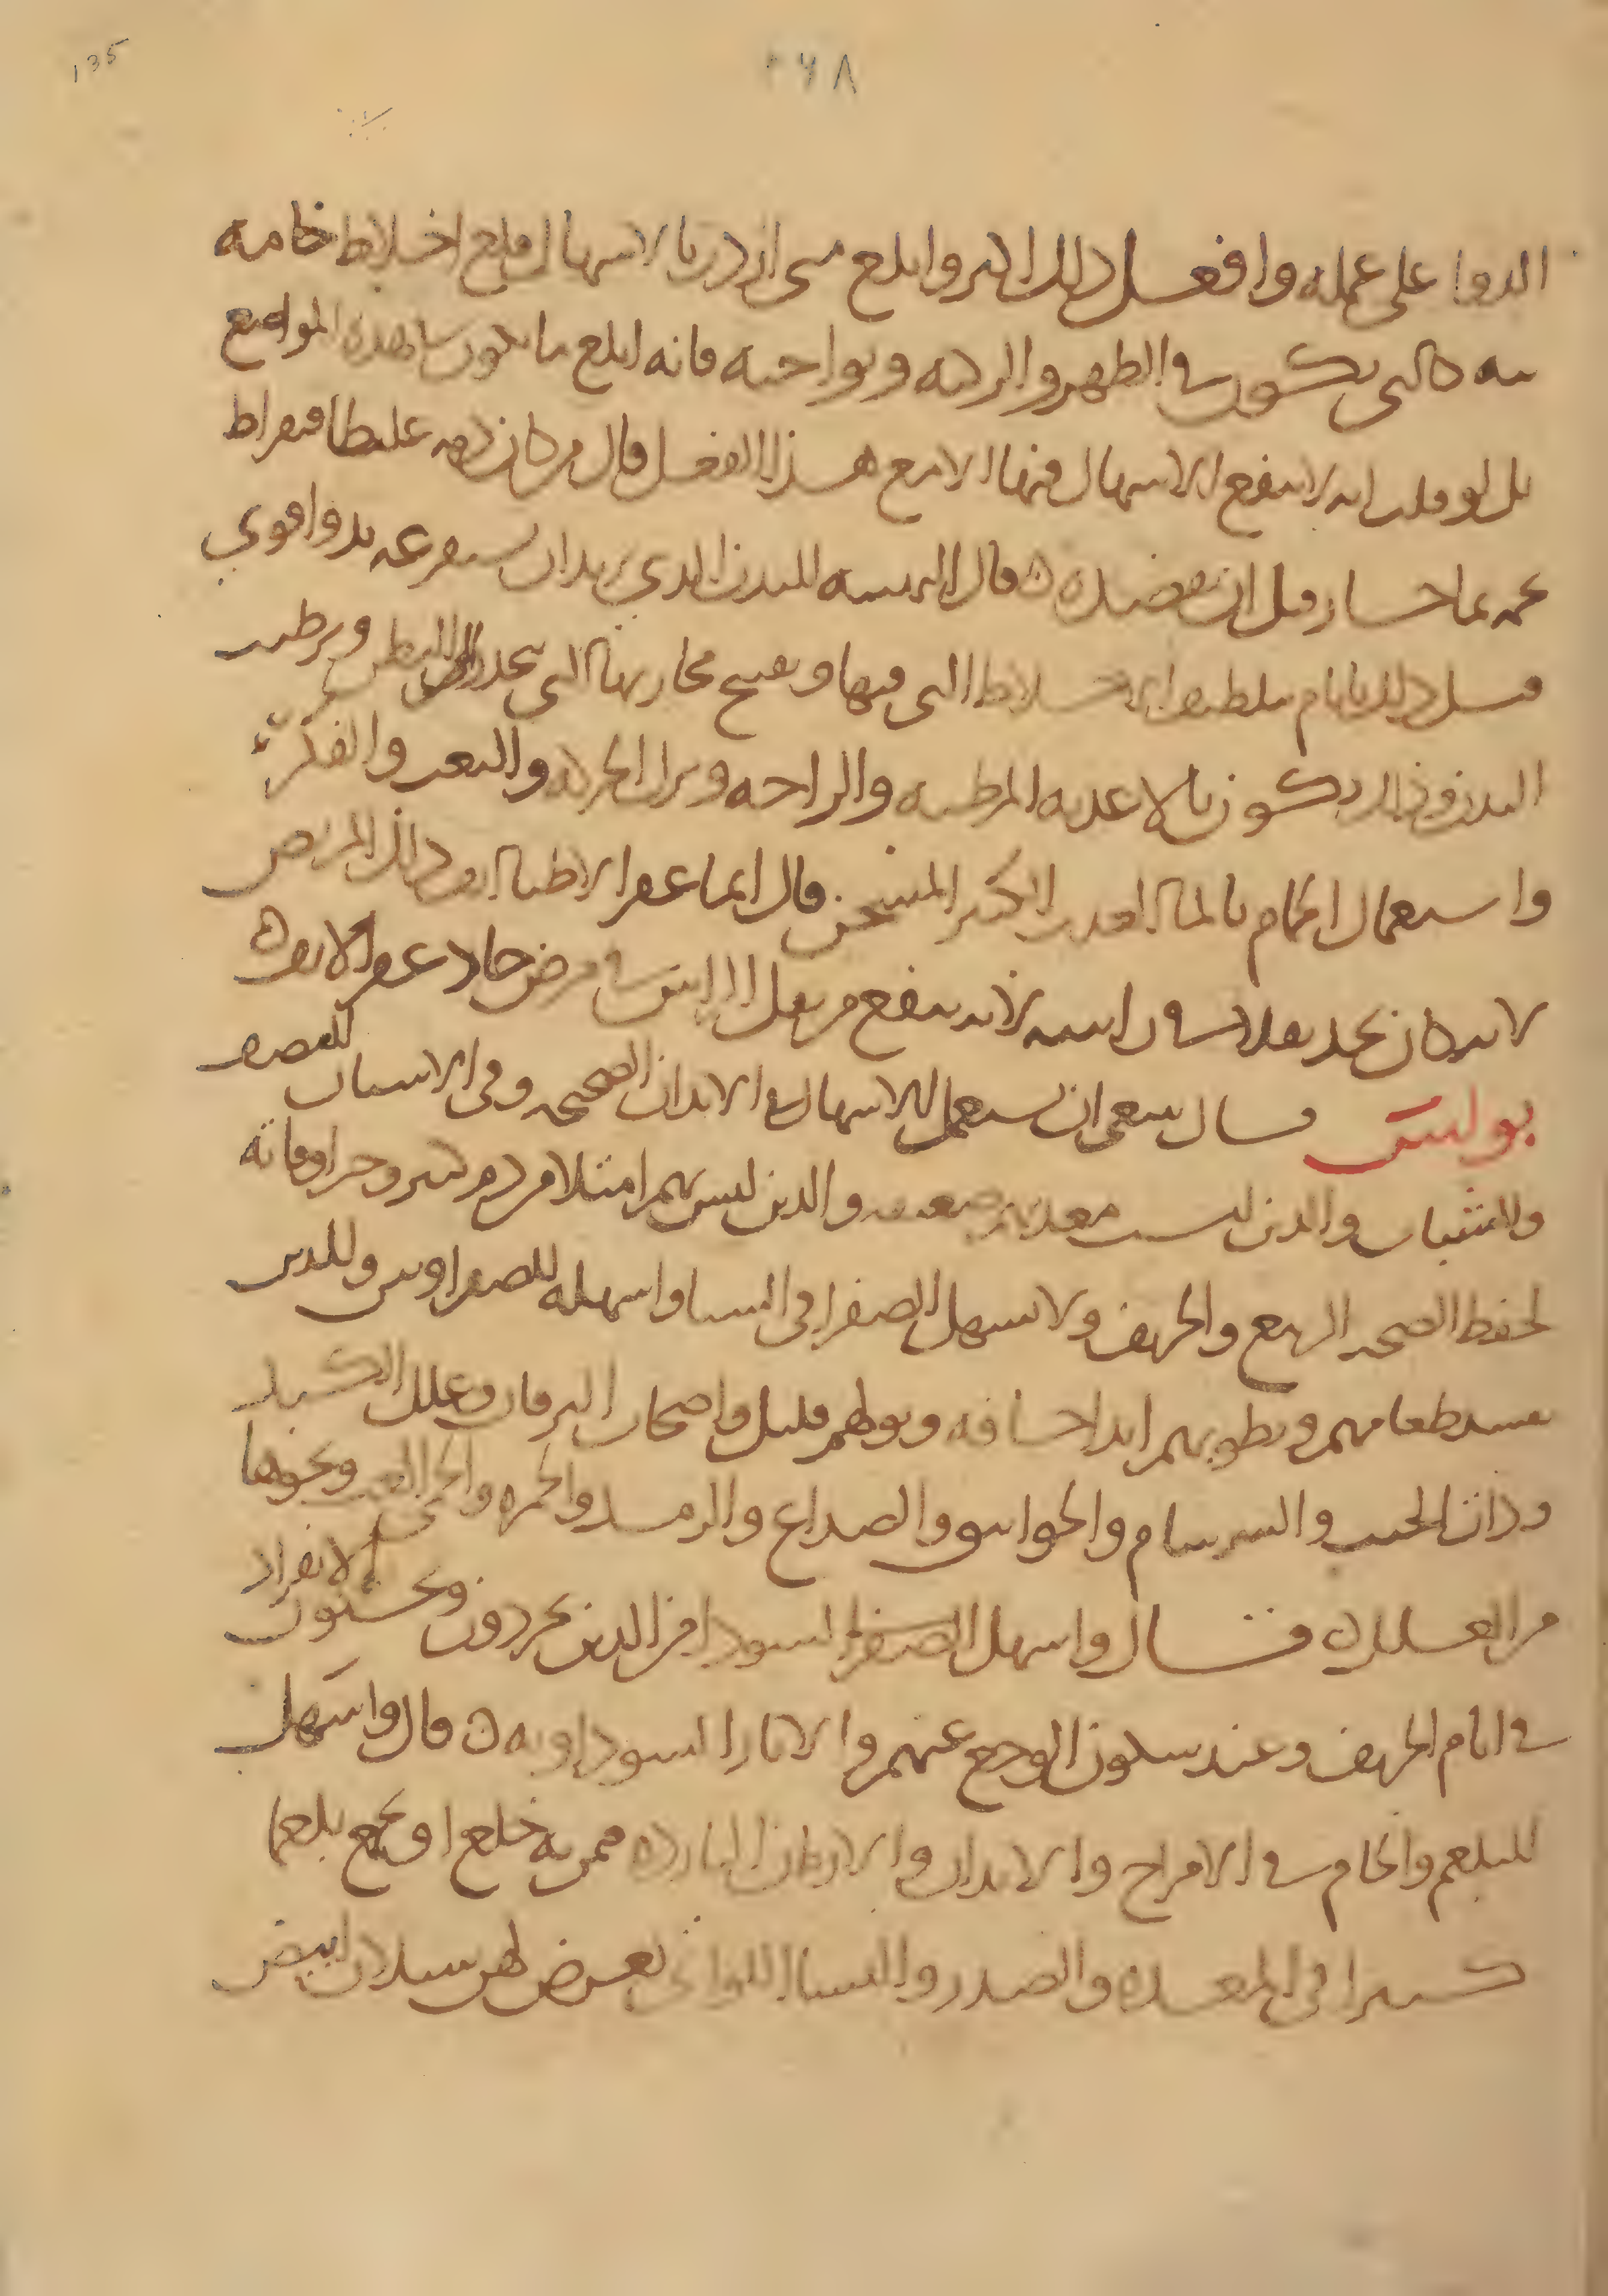 135
٢٦٨
الدوا على عمله وافعل ذلك اكثر وابلغ متى اردت بالاسهال قلع اخلاط خامه
كالتى تكون فى الظهر والركبه ونواحيه فانه ابلغ ما يكون هذه المواضع
بل لو قلت انه لا ينفع الاسهال فيها الا مع هذا الفعل قال من كان دمه غليظا فبقراط
يحمه بماء حار قبل ان تفصده ٥ قال التهيئه للبدن الذي يريد ان يستفرغه بدوا قوي
قبل ذلك بايام بتلطيف الاخلاط التى فيها وتفتح مجاريها التى تنحدر الى البطن وترطيب
البدن وذلك يكون بالاغذيه المرطبه والراحه وترك الحركه والتعب والفكر
واستعمال الحمام بالماء العذب الكثير المسخن قال انما عفر الاطباء انف ذلك المريض
لانه كان يجد ثقلا فى راسه لانه ينفع من ثقل الراس فى مرض حاد عفر الانف ٥
بولس قال ينبغى ان يستعمل الاسهال فى الابدان الصحيحه وفى الاسنان للمنتصف
والشباب والذين ليست معدتهم ضعيفه والذين ليس بهم امتلاء من دم كثير وحراوقاته
لحفظ الصحه الربيع والخريف ولا تسهل الصفرا فى الشتا واسهله للصفراويين وللذين
يفسد طعامهم وبطونهم ابدا جافه وبولهم قليل واصحاب اليرقان وعلل الكبد
وذات الجنب والسرسام والخوانيق والصداع والرمد والحمره والحمى الغب ونحوها
من العلل ٥ قال واسهل الصفرا السودا من الذين يحردون ويحبون الانفراد
فى ايام الخريف وعند سكون الوجع عنهم والاثار السوداويه ٥ قال واسهل
للبلغم والخام فى الامزاج والابدان والازمان البارده ممن به خلع او يجمع بلغما
كثيرا فى المعده والصدر والنساء اللواتى يعرض لهن سيلان ابيض